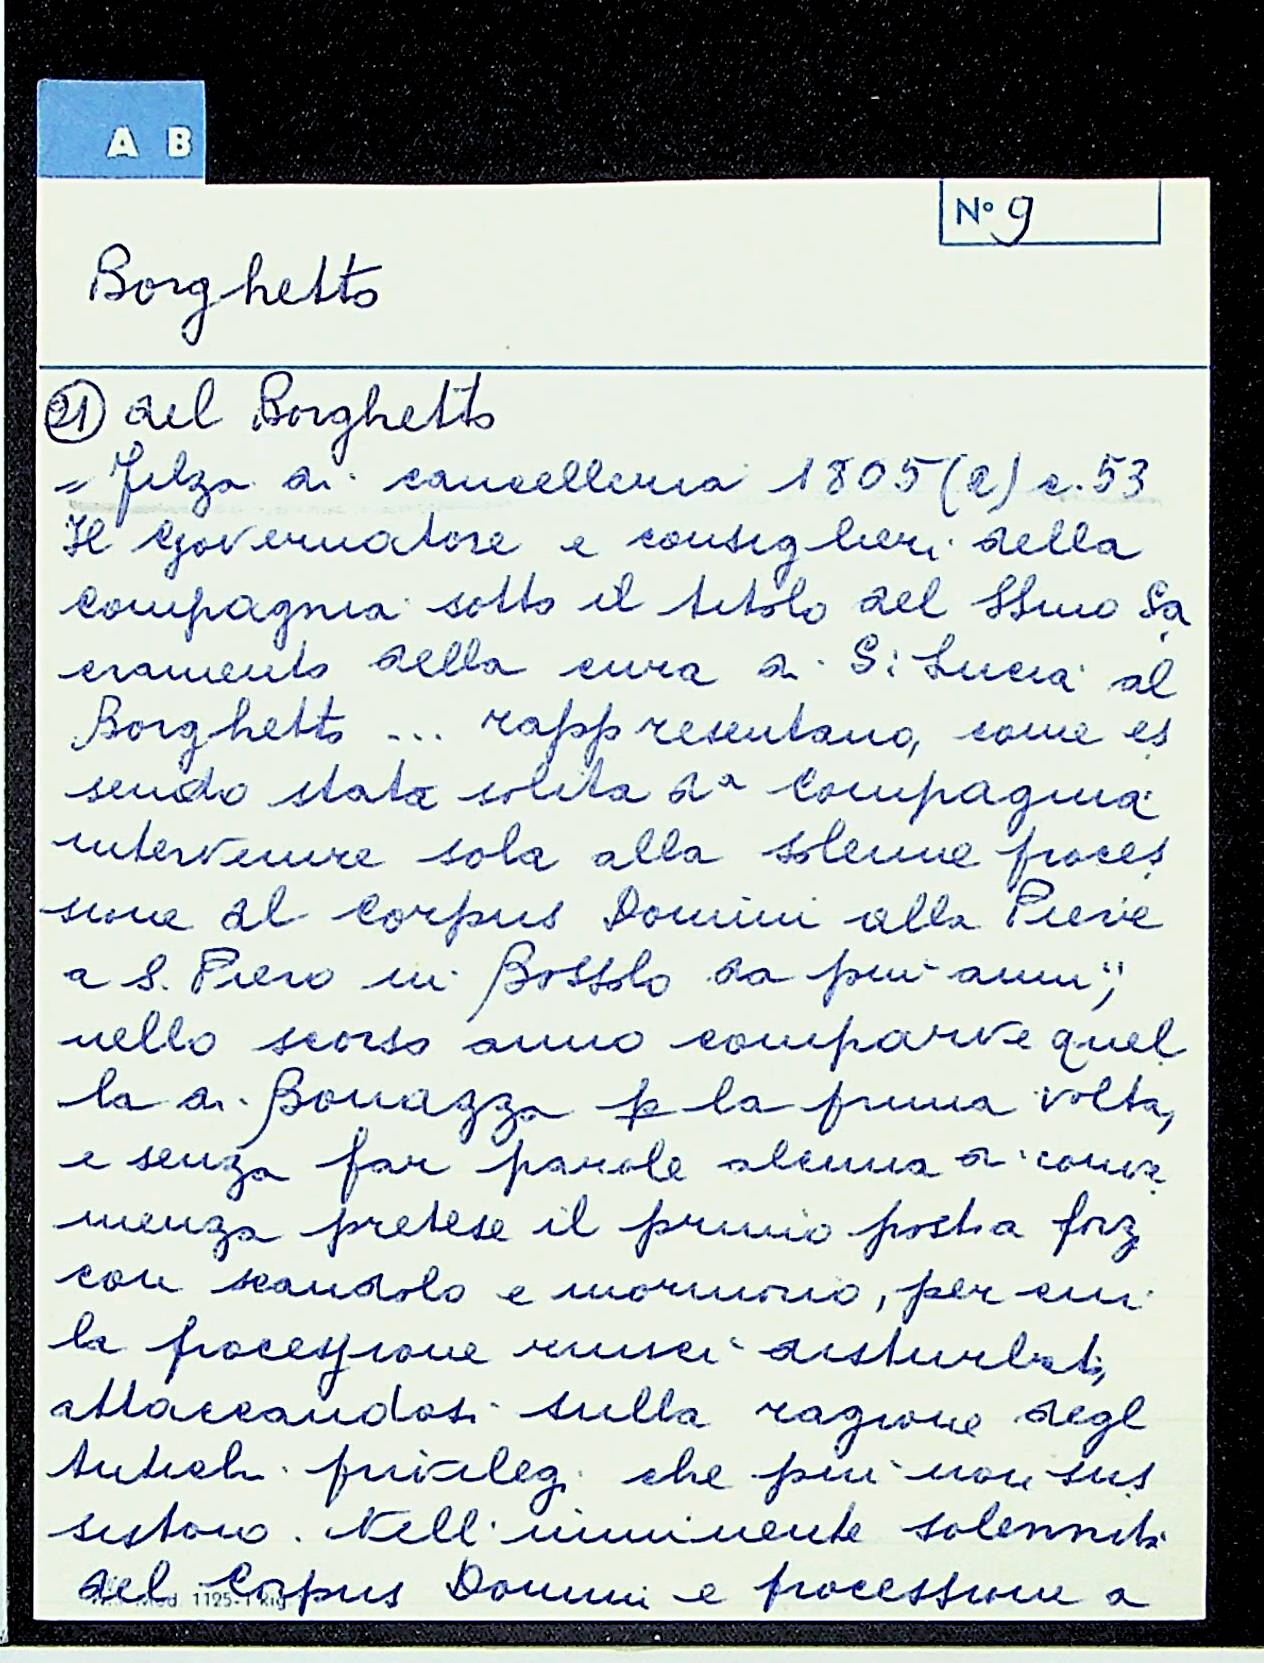 A B
N° 9
Borghetto
21) del Borghetto
= Filza di cancelleria 1805 (2) c. 53
Il Governatore e consiglieri della
compagnia sotto il titolo del SSmo Sa
cramento della cura di S: Lucia al
Borghetto ... rappresentano, come es
sendo stata solita da compagnia
intervenire sola alla solenne proces
sione al Corpus Domini alla Pieve
a S. Piero in Bossolo da più anni;
nello scorso anno comparve quel
la di Bonazza p la prima volta,
e senza far parole alcuna di conve
nienza pretese il primo posto a forz
con scandolo e mormorio, per cui
la processione riuscì disturbata,
attaccandosi sulla ragione degl
antichi privilegi che più non sus
sistono. Nell'imminente solennità
del Corpus Domini e processione a
Mod. 1125-1 Rig